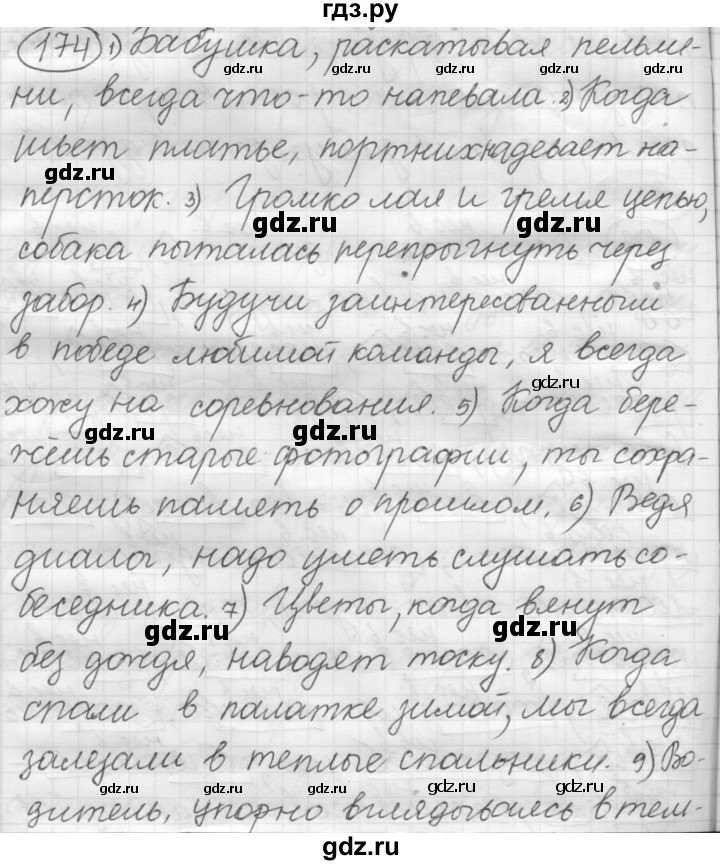 гдз.ру
174 1) Бабушка, раскатывая пельме-
ни, всегда что-то напевала. 2) Когда
шьет платье, портниха надевает на-
персток. 3) Громко лая и гремя цепью,
собака пыталась перепрыгнуть через
забор. 4) Будучи заинтересованным
в победе любимой команды, я всегда
хожу на соревнования. 5) Когда бере-
жёшь старые фотографии, ты сохра-
няешь память о прошлом. 6) Ведя
диалог, надо уметь слушать со-
беседника. 7) Цветы, когда вянут
без дождя, наводят тоску. 8) Когда
спали в палатке зимой, мы всегда
залезали в теплые спальники. 9) Во-
дитель, упорно вглядываясь в тем-
gdz.ru